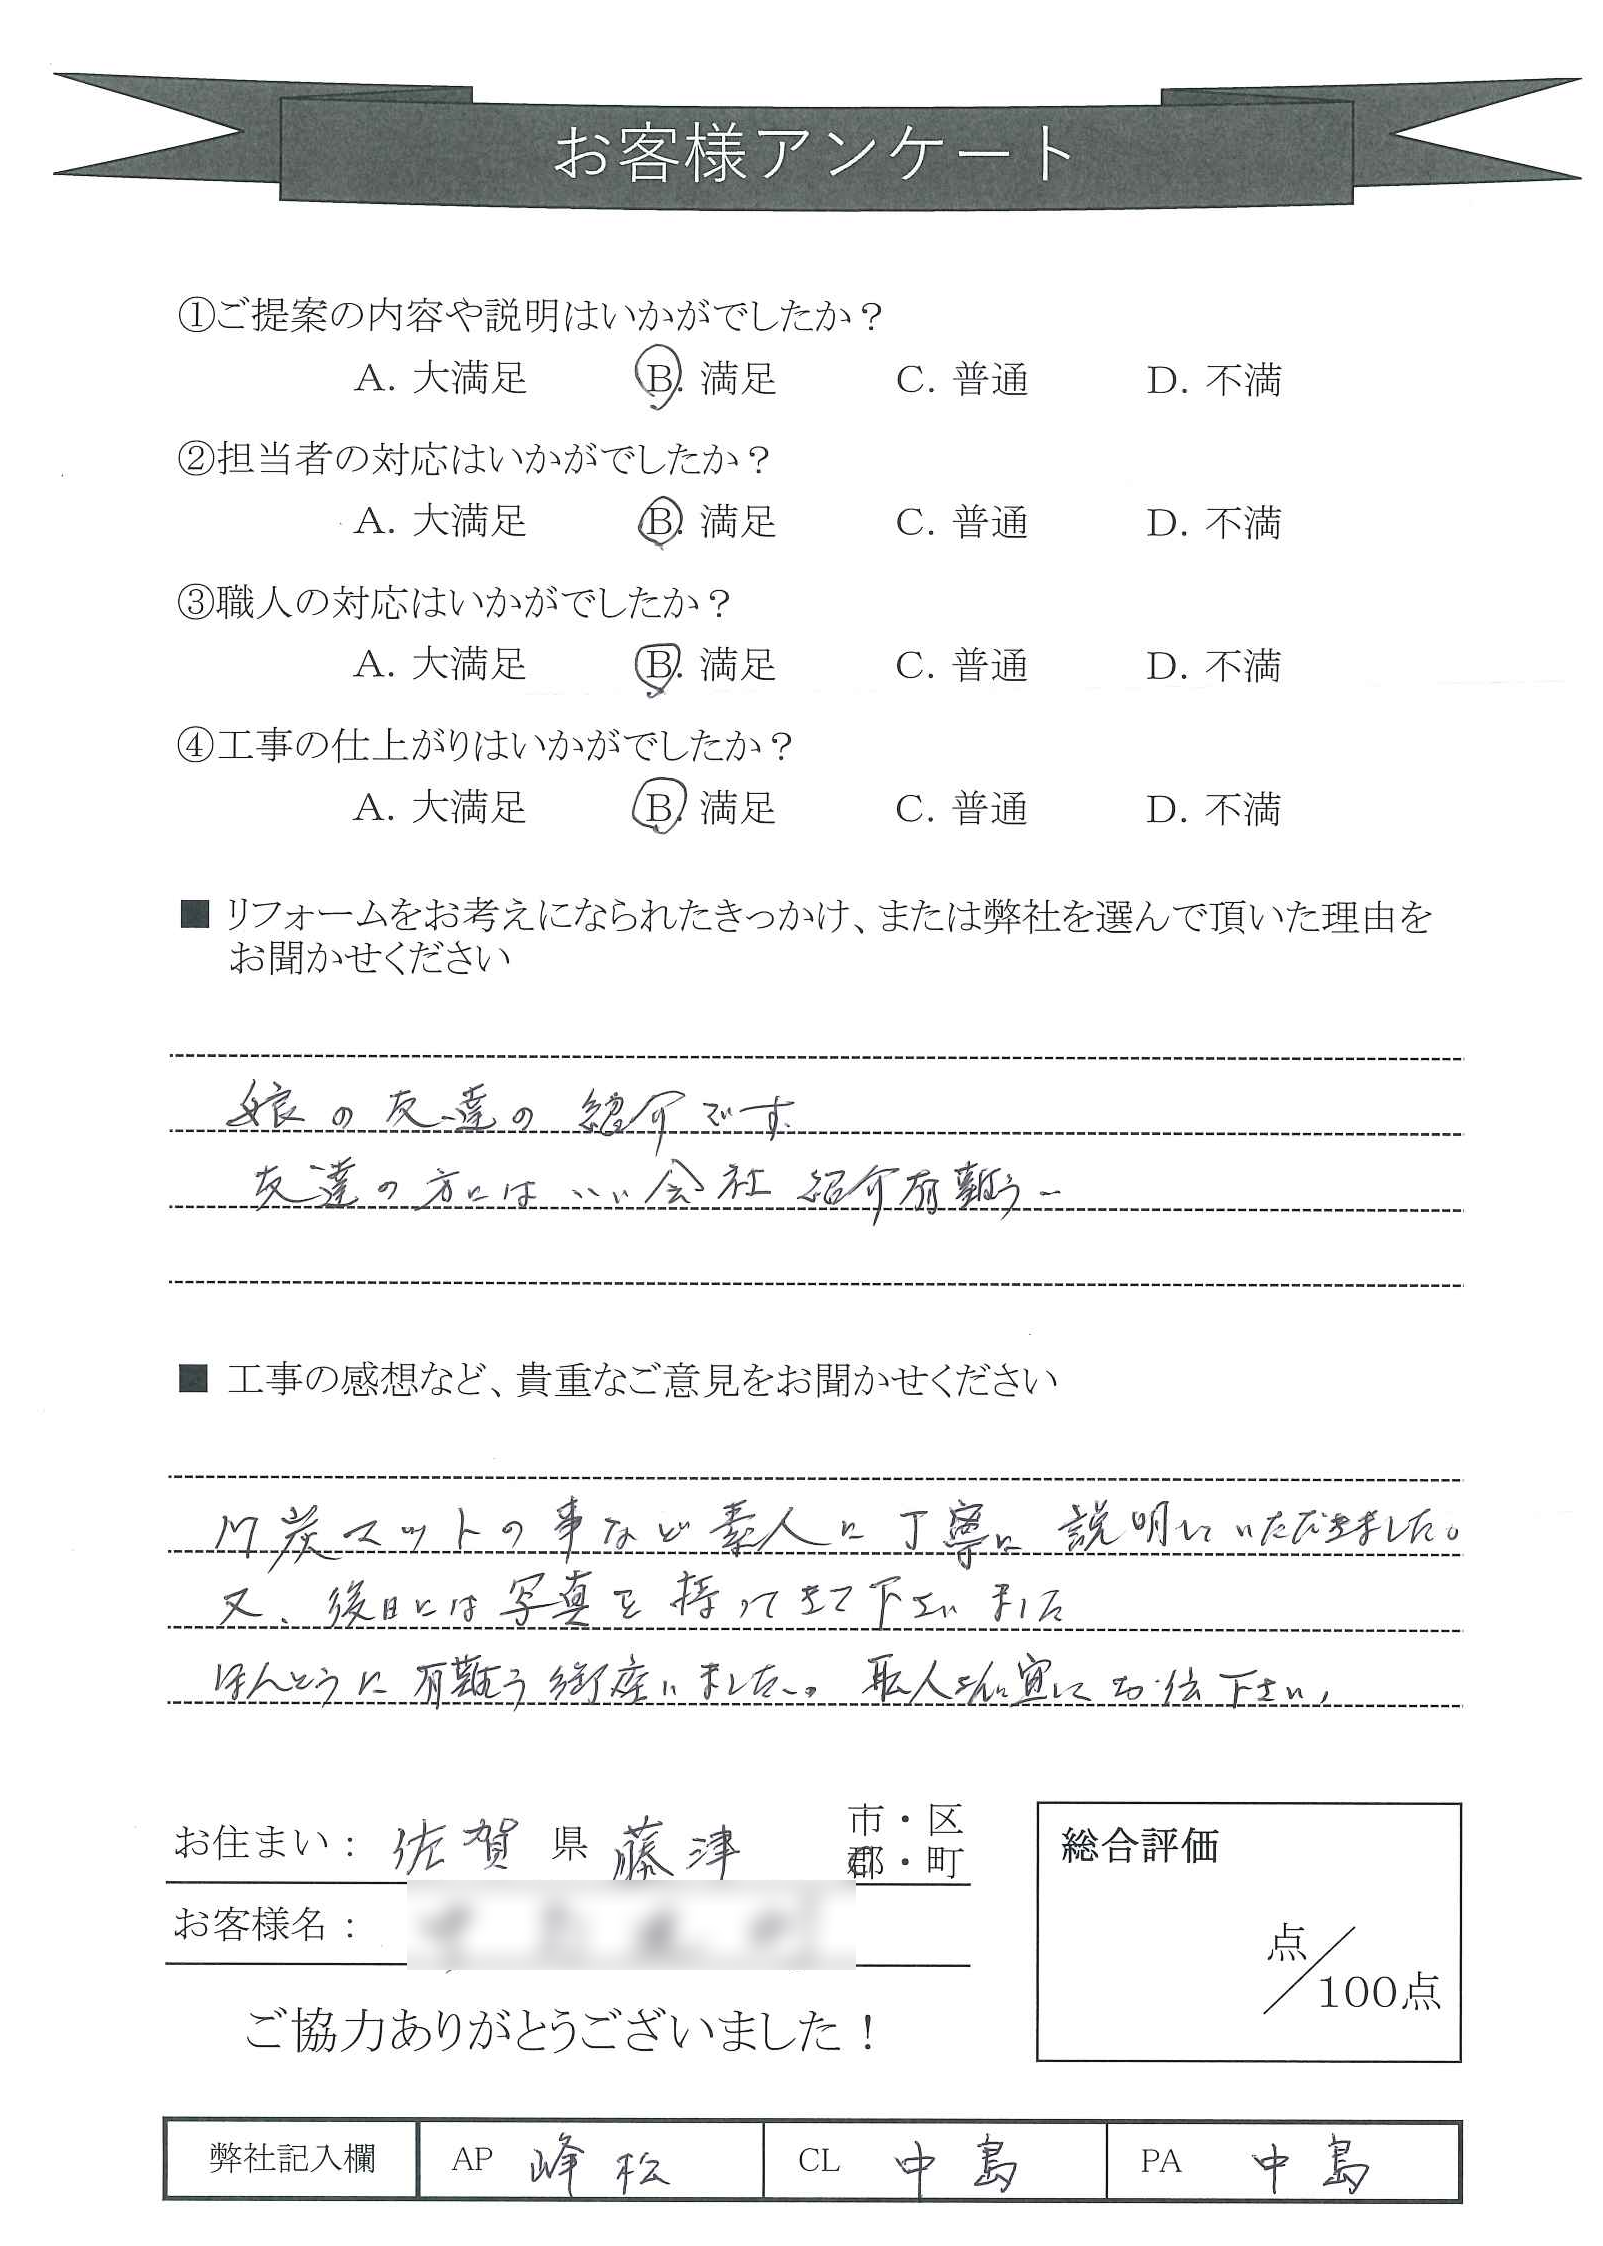 お客様アンケート
①ご提案の内容や説明はいかがでしたか？
A. 大満足 B. 満足 C. 普通 D. 不満
②担当者の対応はいかがでしたか？
A. 大満足 B. 満足 C. 普通 D. 不満
③職人の対応はいかがでしたか？
A. 大満足 B. 満足 C. 普通 D. 不満
④工事の仕上がりはいかがでしたか？
A. 大満足 B. 満足 C. 普通 D. 不満
■ リフォームをお考えになられたきっかけ、または弊社を選んで頂いた理由を
お聞かせください
娘の友達の紹介です
友達の方にはいい会社紹介有難う
■ 工事の感想など、貴重なご意見をお聞かせください
炭マットの事など素人に丁寧に説明していただきました。
又、後日には写真を持ってきて下さいました
ほんとうに有難う御座いました。職人さんに宜しくお伝下さい
お住まい： 佐賀 県 藤津 市・区
郡・町
お客様名：
総合評価
点／100点
ご協力ありがとうございました！
弊社記入欄 AP 峰松 CL 中島 PA 中島